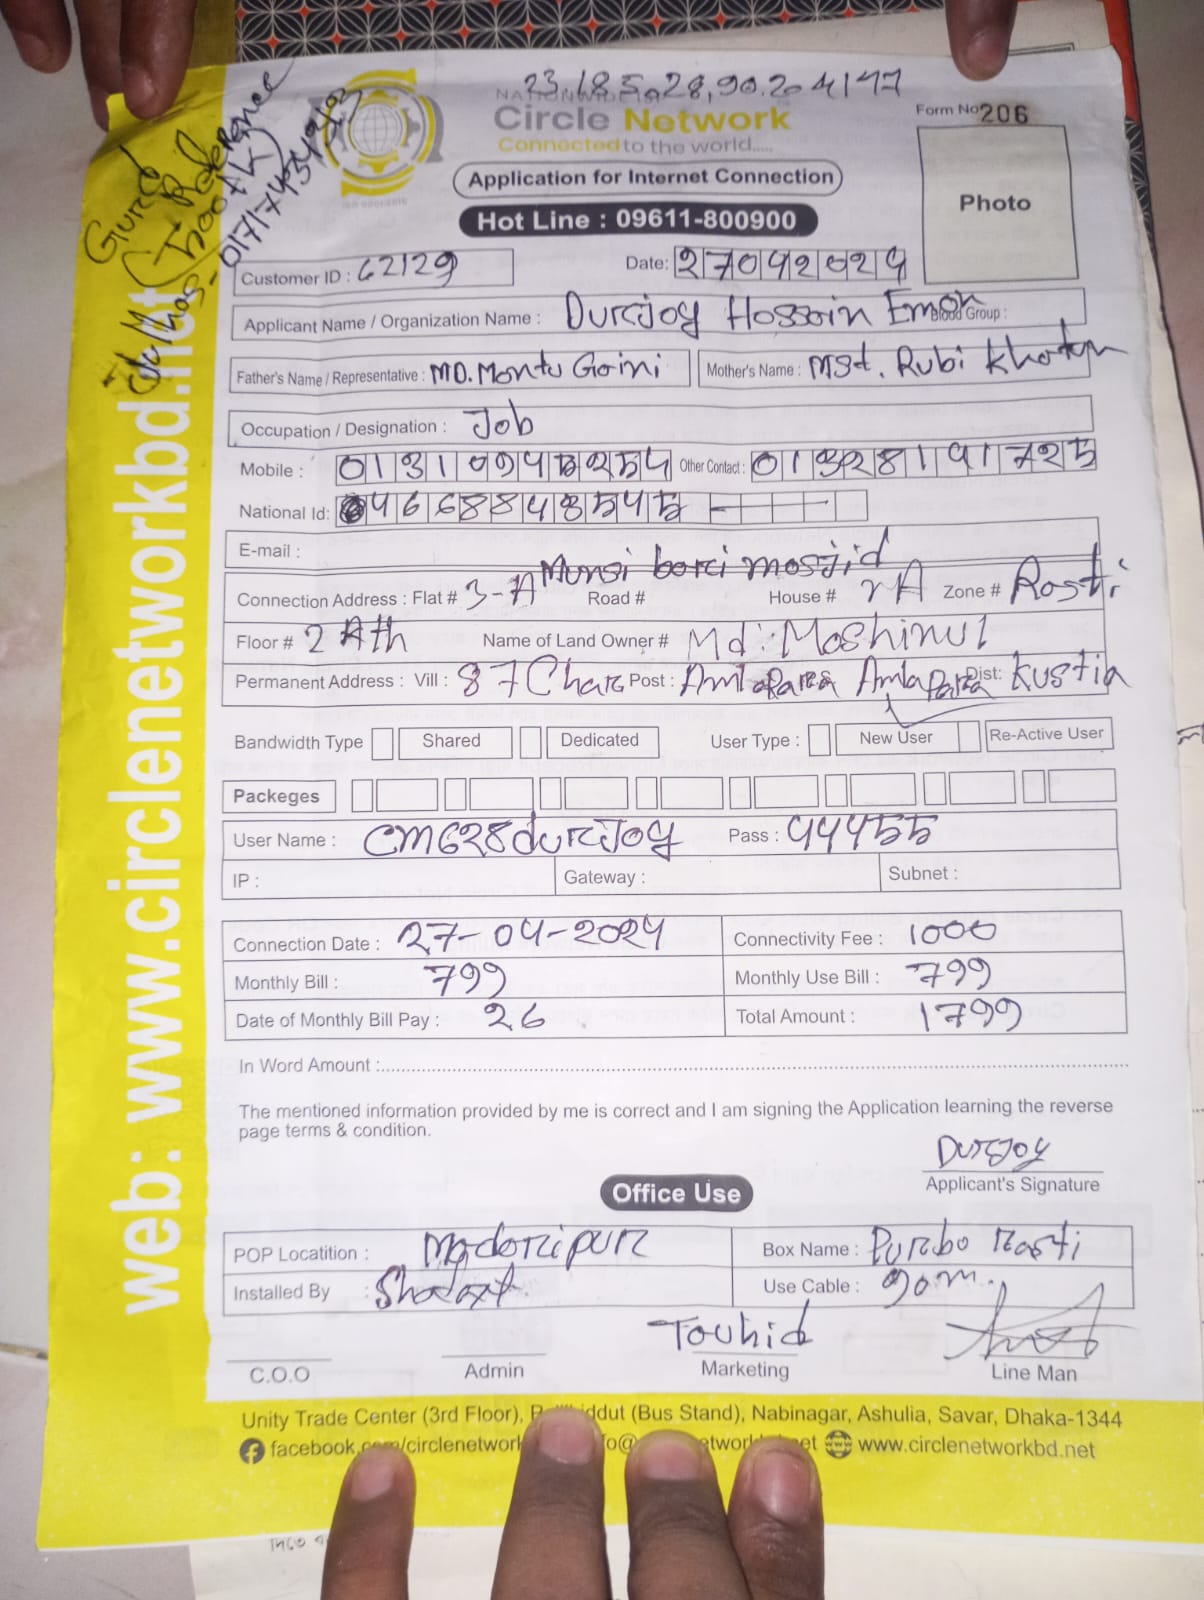 23.185.28,90.204177
NATIONWIDE ISP
Circle Network
Connected to the world.....
Form No 206
Application for Internet Connection
Hot Line : 09611-800900
Photo
Customer ID : 62129
Date: 27042024
Applicant Name / Organization Name : Durjoy Hossain Emon Blood Group :
Father's Name / Representative : MD. Montu Goini Mother's Name : Mst. Rubi Khatun
Occupation / Designation : Job
Mobile : Other Contact :
National Id:
E-mail :
Munsi bari mosjid
Connection Address : Flat # 3-A Road # House # Zone # Rasti
Floor # Name of Land Owner # Md: Moshinul
Permanent Address : Vill : 87 Char Post : Amlapara Amlapara Dist: Kustia
Bandwidth Type Shared Dedicated User Type : New User Re-Active User
Packeges
User Name : CM628durjoy Pass : 444555
IP : Gateway : Subnet :
Connection Date : 27-04-2024 Connectivity Fee : 1000
Monthly Bill : 799 Monthly Use Bill : 799
Date of Monthly Bill Pay : 26 Total Amount : 1799
In Word Amount :
The mentioned information provided by me is correct and I am signing the Application learning the reverse
page terms & condition.
Durjoy
Applicant's Signature
Office Use
POP Locatition : Madaripur Box Name : Purbo Rasti
Installed By : Use Cable : 90m.
Touhid
C.O.O Admin Marketing Line Man
Unity Trade Center (3rd Floor), (Bus Stand), Nabinagar, Ashulia, Savar, Dhaka-1344
www.circlenetworkbd.net
web: www.circlenetworkbd.net